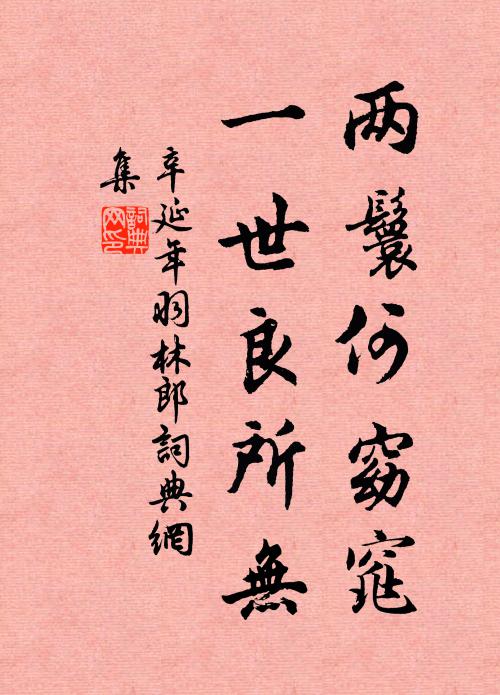 两鬟何窈窕
一世良所無
辛延年羽林郎詞典網
集
詞典
网印